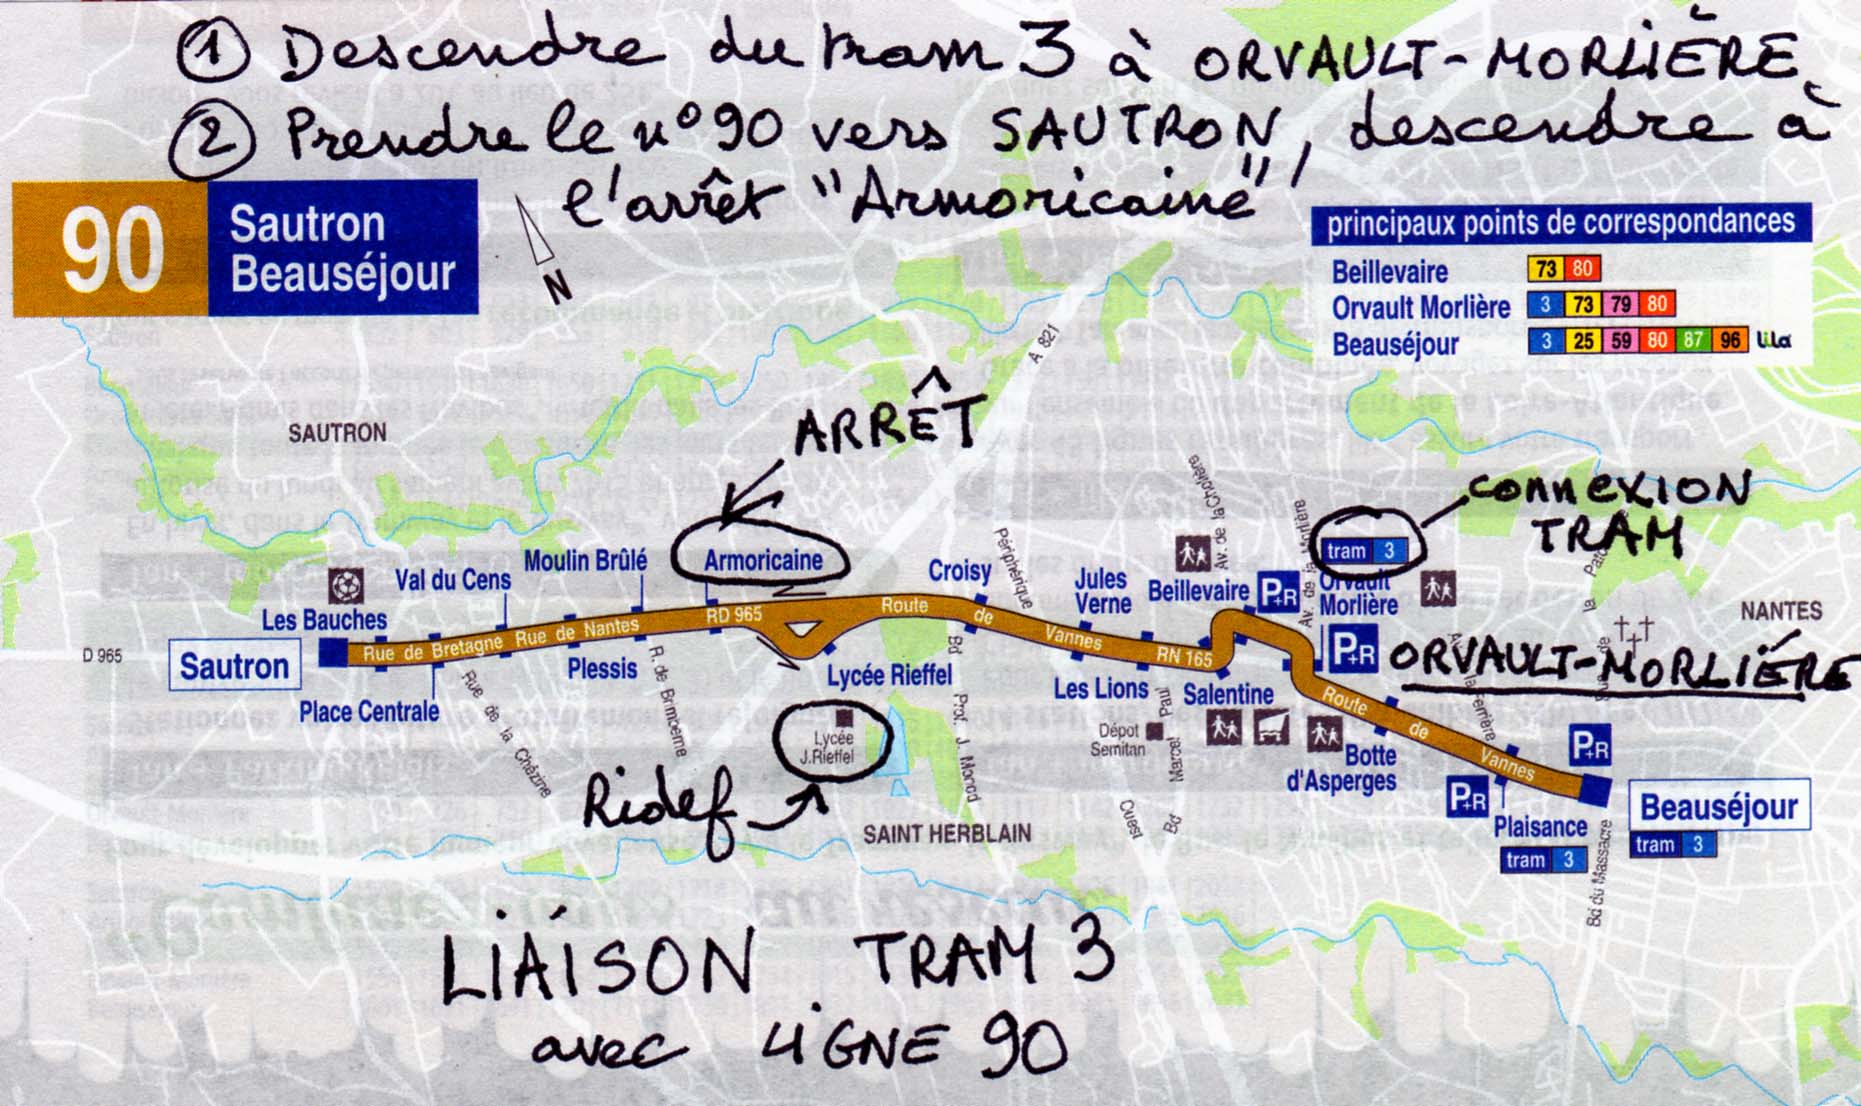 ① Descendre du tram 3 à ORVAULT-MORLIÈRE
② Prendre le n° 90 vers SAUTRON, descendre à
l'arrêt "Armoricaine"
90
Sautron
Beauséjour
N
principaux points de correspondances
Beillevaire 73 80
Orvault Morlière 3 73 79 80
Beauséjour 3 25 59 80 87 96 Lila
A 821
SAUTRON
ARRÊT
connexion
TRAM
Armoricaine
Moulin Brûlé
Val du Cens
Les Bauches
Croisy
Périphérique
Jules
Verne
Beillevaire
P+R
Av. de la Cholière
Av. de la Morlière
tram 3
Orvault
Morlière
NANTES
D 965
Sautron
Rue de Bretagne
Rue de Nantes
RD 965
Route de Vannes
RN 165
P+R
ORVAULT-MORLIÈRE
Place Centrale
Plessis
Lycée Rieffel
Les Lions
Salentine
Route de Vannes
Rue de la Chézine
R. de Brimberne
Lycée
J.Rieffel
Bd Prof. J. Monod
Dépot
Semitan
Bd Marcel Paul
Ouest
Botte
d'Asperges
P+R
P+R
Plaisance
tram 3
Beauséjour
tram 3
Bd du Massacre
Ridef
SAINT HERBLAIN
LIAISON TRAM 3
avec LIGNE 90